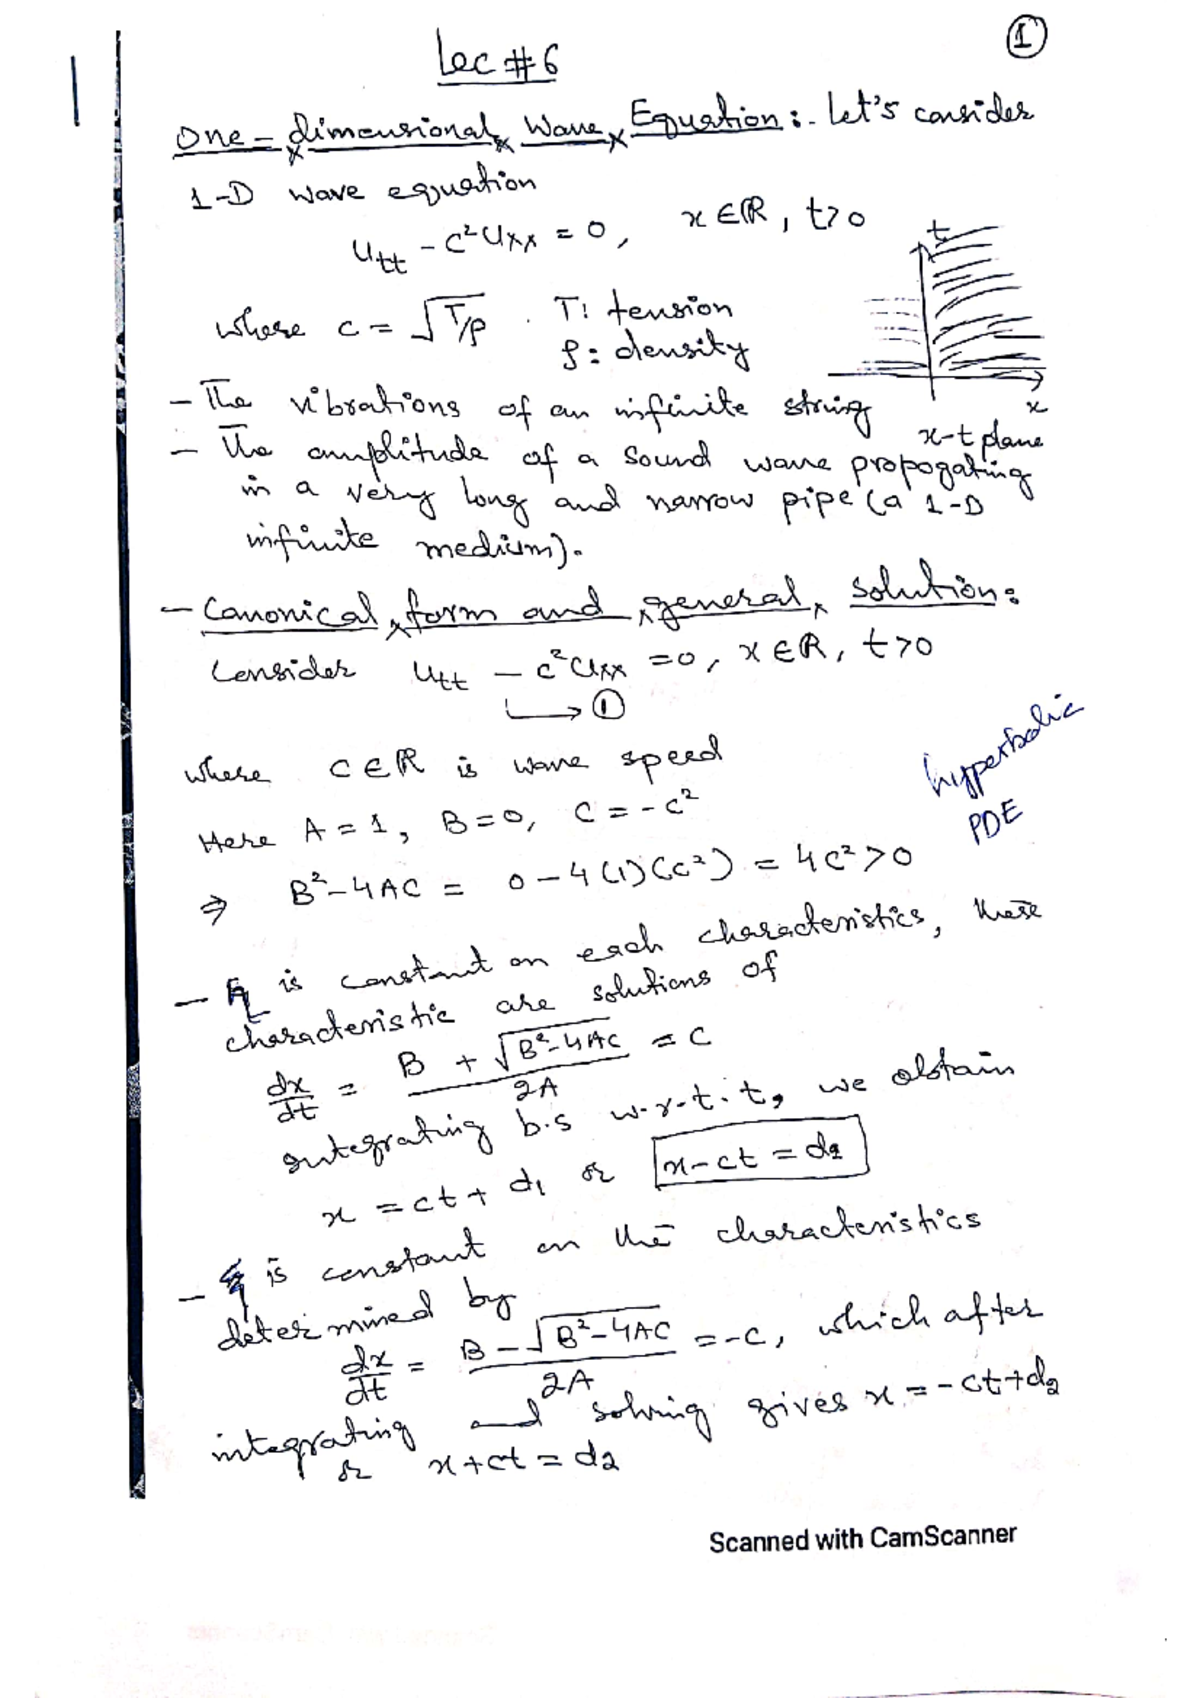 1
Lec #6
One-dimensional Wave Equation:- Let's consider
1-D wave equation
u_tt - c²u_xx = 0, x ∈ ℝ, t>0
t
where c = √T/ρ . T: tension
ρ: density
- The vibrations of an infinite string
x
x-t plane
- The amplitude of a sound wave propogating
in a very long and narrow pipe (a 1-D
infinite medium).
- Canonical form and general solution:
Consider u_tt - c²u_xx = 0, x ∈ ℝ, t>0
→ ①
where c ∈ ℝ is wave speed
hyperbolic
PDE
Here A = 1, B=0, C = -c²
⇒ B²-4AC = 0-4(1)(-c²) = 4c²>0
- is constant on each characteristics, these
characteristic are solutions of
dx/dt = B + √B²-4AC / 2A = c
integrating b.s w.r.t. t, we obtain
x = ct + d₁ or x-ct = d₁
- is constant on the characteristics
determined by
dx/dt = B - √B²-4AC / 2A = -c, which after
integrating and solving gives x = -ct+d₂
or x+ct = d₂
Scanned with CamScanner